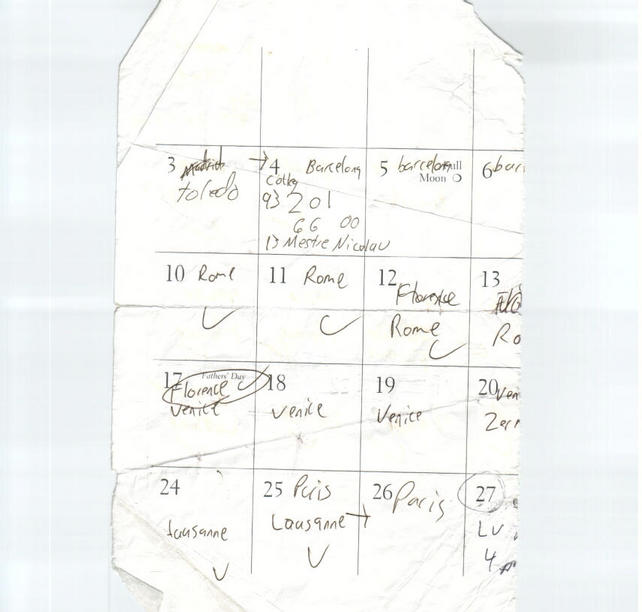 3 Madrid
toledo
→4 Barcelona
93 201
66 00
13 Mestre Nicolau
5 barcelona Full
Moon
6 bar
10 Rome
11 Rome
12 Florence
Rome
13
Ro
17 Fathers' Day
Florence
Venice
18
Venice
19
Venice
20 Ven
24
Lausanne
25 Paris
Lausanne →
26 Paris
27
LV
4